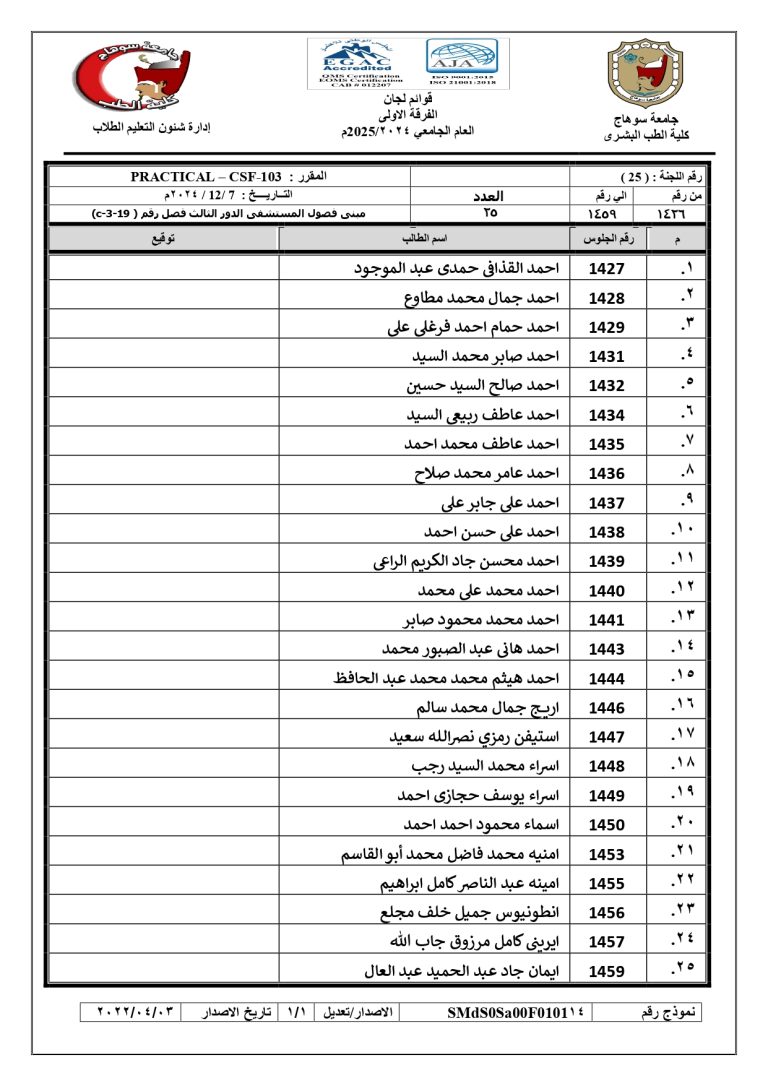 جامعة سوهاج
كلية الطب البشرى
EGAC
Accredited
QMS Certification
EOMS Certification
CAB # 012207
AJA
ISO 9001:2015
ISO 21001:2018
قوائم لجان
الفرقة الاولى
العام الجامعي ٢٠٢٤/2025م
جامعة سوهاج
كلية الطب
إدارة شئون التعليم الطلاب
رقم اللجنة : ( 25 ) المقرر : PRACTICAL – CSF-103
من رقم الي رقم العدد التـاريـــخ : 7 /12 /٢٠٢٤م
١٤٢٦ ١٤٥٩ ٢٥ مبنى فصول المستشفى الدور الثالث فصل رقم ( c-3-19)
م رقم الجلوس اسم الطالب توقيع
١. 1427 احمد القذافى حمدى عبد الموجود
٢. 1428 احمد جمال محمد مطاوع
٣. 1429 احمد حمام احمد فرغلى على
٤. 1431 احمد صابر محمد السيد
٥. 1432 احمد صالح السيد حسين
٦. 1434 احمد عاطف ربيعى السيد
٧. 1435 احمد عاطف محمد احمد
٨. 1436 احمد عامر محمد صلاح
٩. 1437 احمد على جابر على
١٠. 1438 احمد على حسن احمد
١١. 1439 احمد محسن جاد الكريم الراعى
١٢. 1440 احمد محمد على محمد
١٣. 1441 احمد محمد محمود صابر
١٤. 1443 احمد هانى عبد الصبور محمد
١٥. 1444 احمد هيثم محمد محمد عبد الحافظ
١٦. 1446 اريج جمال محمد سالم
١٧. 1447 استيفن رمزي نصرالله سعيد
١٨. 1448 اسراء محمد السيد رجب
١٩. 1449 اسراء يوسف حجازى احمد
٢٠. 1450 اسماء محمود احمد احمد
٢١. 1453 امنيه محمد فاضل محمد أبو القاسم
٢٢. 1455 امينه عبد الناصر كامل ابراهيم
٢٣. 1456 انطونيوس جميل خلف مجلع
٢٤. 1457 ايرينى كامل مرزوق جاب الله
٢٥. 1459 ايمان جاد عبد الحميد عبد العال
نموذج رقم SMdS0Sa00F0101١٤ الاصدار/تعديل ١/١ تاريخ الاصدار ٢٠٢٢/٠٤/٠٣